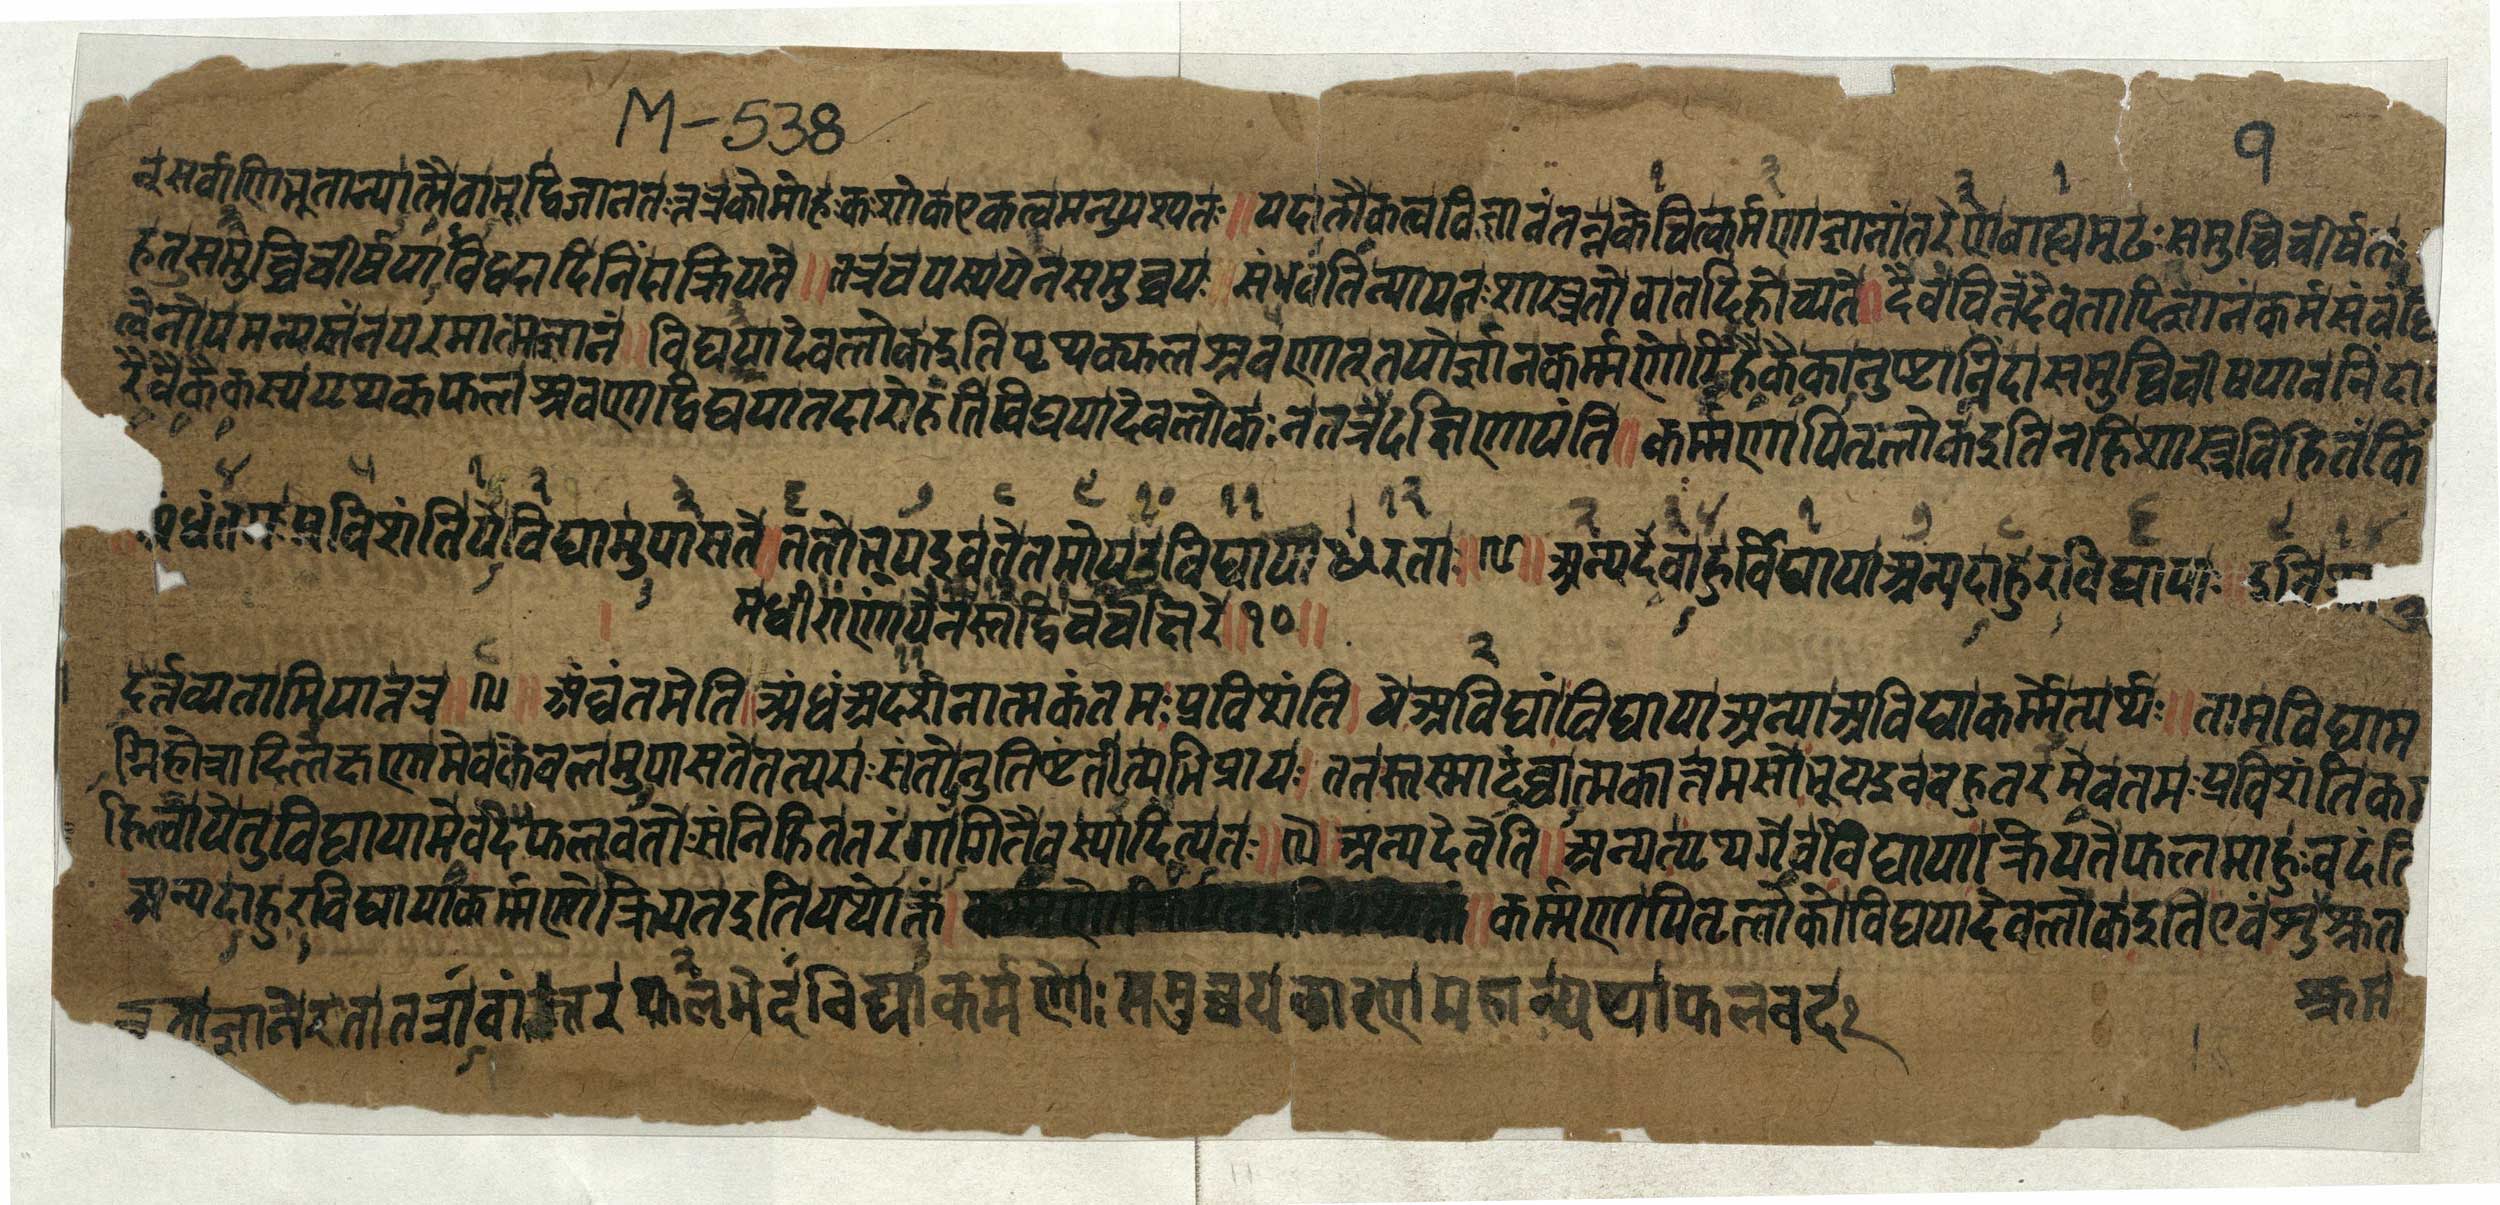 M-538
१
न्सर्वाणिभूतान्यात्मैवाभूद्विजानतः तत्रकोमोहःकःशोकएकत्वमनुपश्यतः ॥ यदात्मैकत्वविज्ञानंतन्नकेचित्कर्मणाज्ञानांतरेणवाह्यमूढः समुच्चिचीर्षति
हतुसमुच्चिचीर्षया विद्वदादिनिंदाक्रियते ॥ तत्रचयस्ययेनसमुच्चयः संभवतिन्यायतः शास्त्रतोवातदिहोच्यते ॥ दैवंवित्तंदेवताविज्ञानंकर्मसंबंधि
त्वेनोपमन्यस्तंनपरमात्मज्ञानं ॥ विद्ययादेवलोकइतिपृथक्फलश्रवणात्तयोर्ज्ञानकर्म्मणोरिहैकैकानुष्टाननिंदासमुच्चिचीषयाननिंदा
रैवैकैकस्यपृथक्फलश्रवणाद्विद्ययातदारोहंतिविद्ययादेवलोकः नतत्रदक्षिणायंति ॥ कर्म्मणापितृलोकइतिनहिशास्त्रविहितंकिं
अंधंतमः प्रविशंतियेविद्यामुपासते ॥ ततोभूयइवतेतमोयउविद्यायाᳪरताः ॥ ९ ॥ अन्यदेवाहुर्विद्यायाअन्यदाहुरविद्यायाः ॥ इति
मधीराणांयेनस्तद्विचचक्षिरे ॥ १० ॥
दर्त्तव्यतामियात्तत्र ॥ ९ ॥ अंधंतमेति ॥ अंधंअदर्शनात्मकंतमः प्रविशंति । येअविद्यांविद्यायाअन्याअविद्याकर्म्मेत्यर्थः ॥ तामविद्याम
ग्निहोत्रादिलक्षणामेवकेवलमुपासतेतत्पराः संतोनुतिष्टंतीत्यभिप्रायः । ततस्तस्मादंधात्मकात्तमसोभूयइवबहुतरमेवतमः प्रविशंतिक
हित्वायेतुविद्यायामेव फलवतोः संनिहिततरंगांगितैवस्यादित्यतः ॥ ९ ॥ अन्यदेवेति ॥ अन्यत्पृथगेवविद्यायाक्रियतेफलमाहुः वदंति
अन्यदाहुरविद्यायाकर्म्मणोक्रियतइतियथोक्तं । कर्म्मणापितृलोकोविद्ययादेवलोकइतिएवंशुश्रुत
तत्रावांतरफलभेदंविद्याकर्मणोः समुच्चयकारणमहान्यथाफलवदः
श्रुम